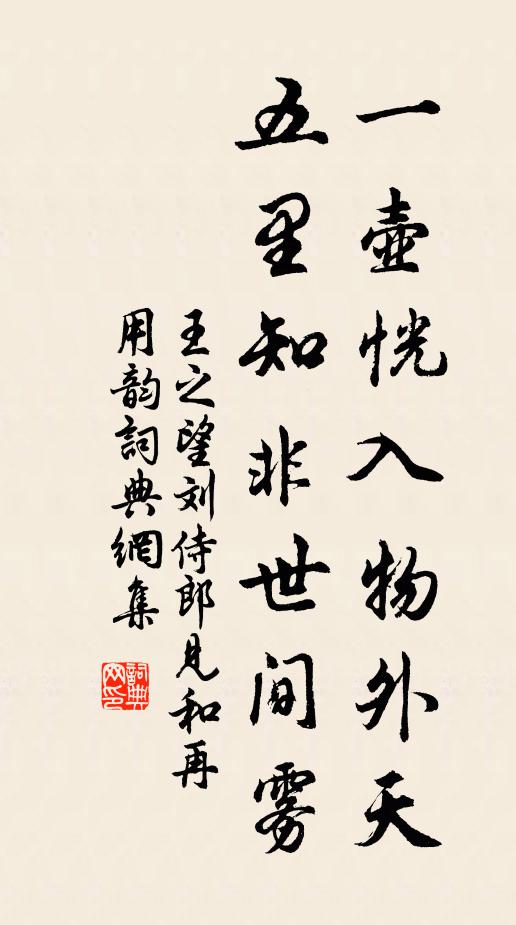 一壺恍入物外天
五里知非世间雾
王之望刘侍郎见和再
用韵詞典網集
詞典
网印